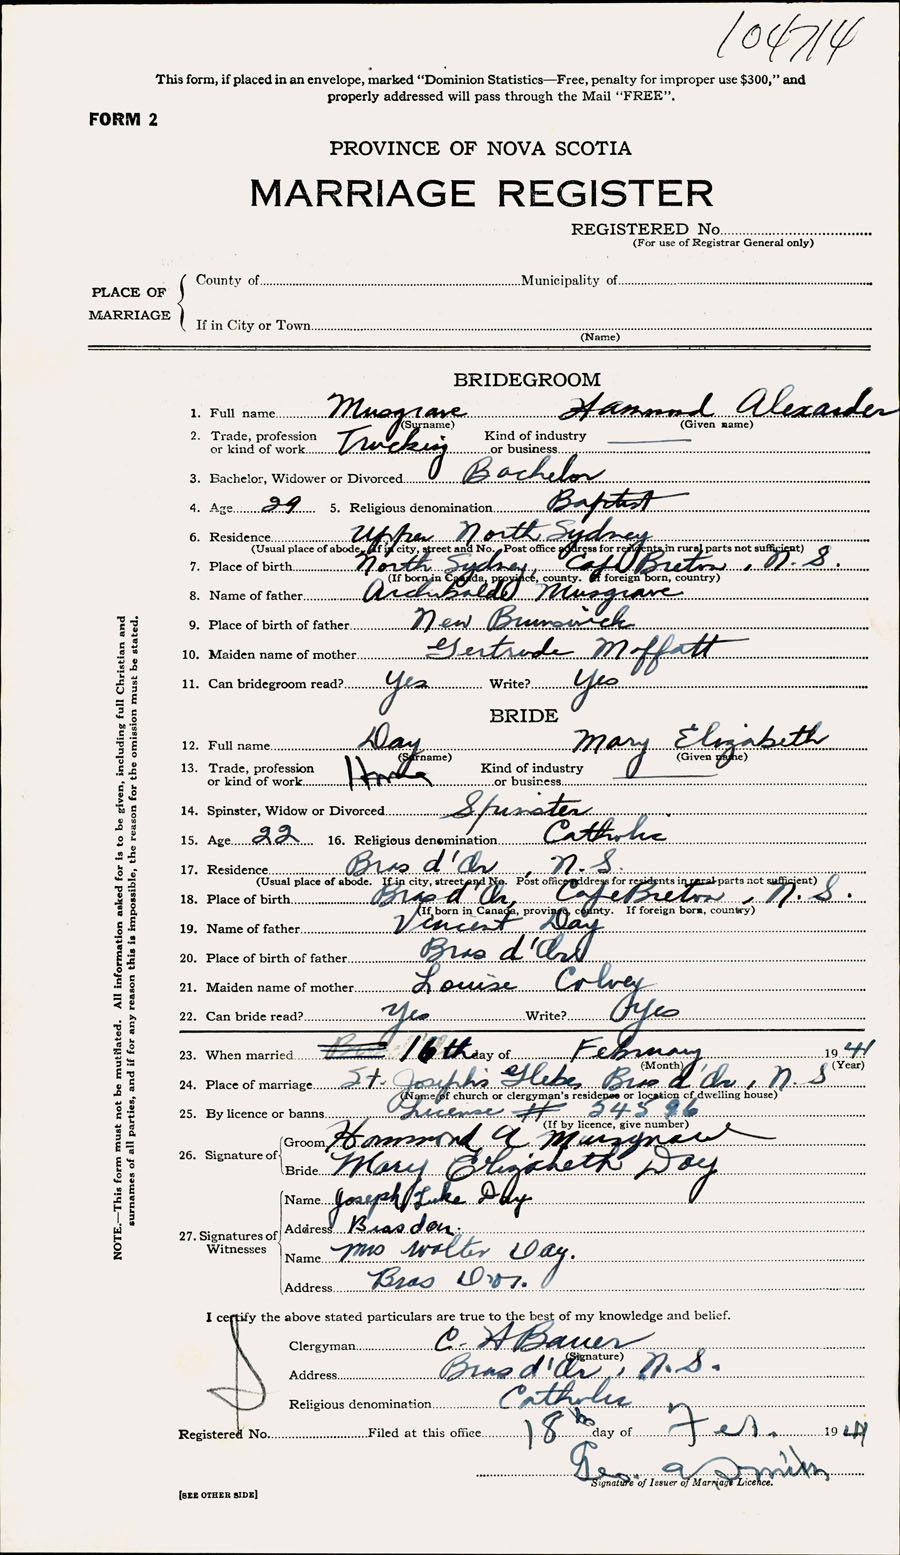 104714
This form, if placed in an envelope, marked "Dominion Statistics—Free, penalty for improper use $300," and
properly addressed will pass through the Mail "FREE".
FORM 2
PROVINCE OF NOVA SCOTIA
MARRIAGE REGISTER
REGISTERED No.
(For use of Registrar General only)
PLACE OF MARRIAGE
County of Municipality of
If in City or Town
(Name)
BRIDEGROOM
1. Full name Musgrave Hammond Alexander
(Surname) (Given name)
2. Trade, profession or kind of work Trucking Kind of industry or business
3. Bachelor, Widower or Divorced Bachelor
4. Age 29 5. Religious denomination Baptist
6. Residence Upper North Sydney
(Usual place of abode. If in city, street and No. Post office address for residents in rural parts not sufficient)
7. Place of birth North Sydney, Cape Breton, N. S.
(If born in Canada, province, county. If foreign born, country)
8. Name of father Archibald Musgrave
9. Place of birth of father New Brunswick
10. Maiden name of mother Gertrude Moffatt
11. Can bridegroom read? Yes Write? Yes
BRIDE
12. Full name Day Mary Elizabeth
(Surname) (Given name)
13. Trade, profession or kind of work Home Kind of industry or business
14. Spinster, Widow or Divorced Spinster
15. Age 22 16. Religious denomination Catholic
17. Residence Bras d'Or, N. S.
(Usual place of abode. If in city, street and No. Post office address for residents in rural parts not sufficient)
18. Place of birth Bras d'Or, Cape Breton, N. S.
(If born in Canada, province, county. If foreign born, country)
19. Name of father Vincent Day
20. Place of birth of father Bras d'Or
21. Maiden name of mother Louise Colvey
22. Can bride read? Yes Write? Yes
23. When married 16th day of February 1941
(Month) (Year)
24. Place of marriage St. Joseph's Glebe Bras d'Or, N. S
(Name of church or clergyman's residence or location of dwelling house)
25. By licence or banns License # 54596
(If by licence, give number)
26. Signature of
Groom Hammond A Musgrave
Bride Mary Elizabeth Day
27. Signatures of Witnesses
Name Joseph Luke Day
Address Bras dor.
Name Mrs Walter Day.
Address Bras Dor.
I certify the above stated particulars are true to the best of my knowledge and belief.
Clergyman C. A Bauer
(Signature)
Address Bras d'Or, N. S.
Religious denomination Catholic
Registered No. Filed at this office 18th day of Feb. 1941
Geo. A Smith
Signature of Issuer of Marriage Licence.
[SEE OTHER SIDE]
NOTE.—This form must not be mutilated. All information asked for is to be given, including full Christian and
surnames of all parties, and if for any reason this is impossible, the reason for the omission must be stated.